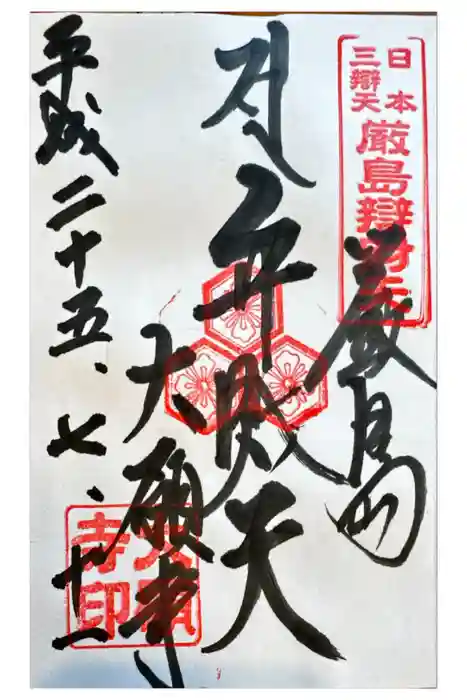 日本
三辯天
厳島辯財天
嚴島
弁財天
大願寺
大願
寺印
平成二十五、七、十一